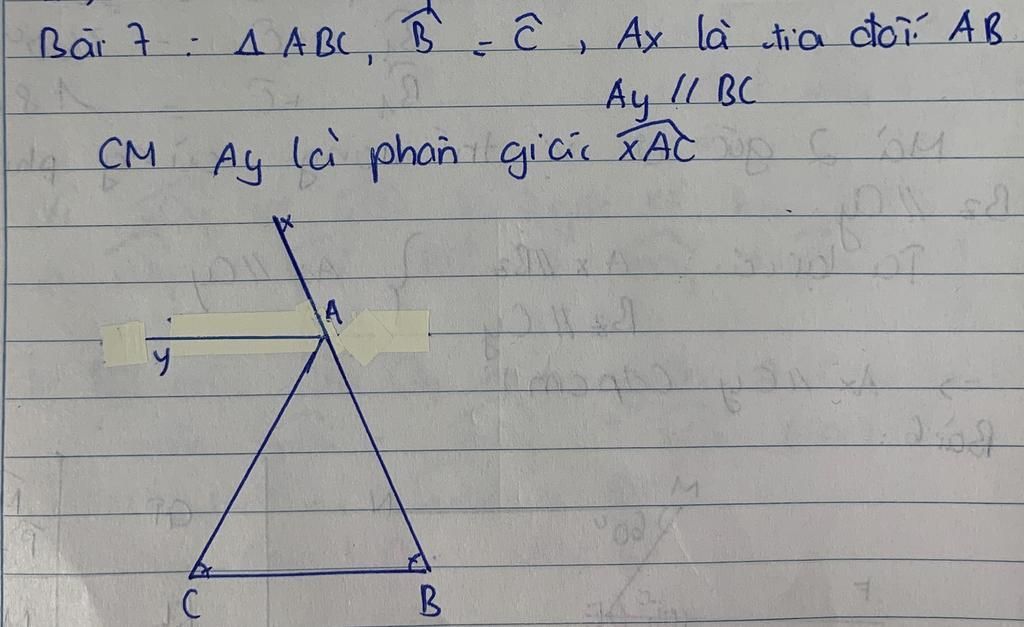 Bài 7 : Δ ABC, B̂ = Ĉ , Ax là tia đối AB
Ay // BC
CM Ay là phân giác xAC
x
A
y
C
B